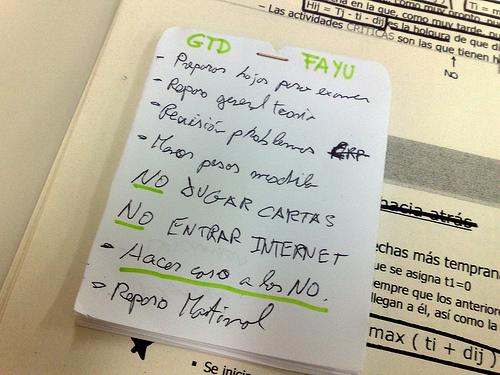 ma en la que, como muy tarde, pu
Ti = m
Hij = Tj - ti - dij es la holgura de que di
- Las actividades CRÍTICAS son las que tienen h
NO
GTD FAYU
- Preparar hojas para examen
- Repaso general teoría
- Revisión problemas
- Meros pesos mochila
NO JUGAR CARTAS
NO ENTRAR INTERNET
- Hacer caso a los NO.
- Repaso Matinal
hacia atrás
echas más tempran
ue se asigna t1=0
empre que los anteriore
llegan a él, así como la
max ( ti + dij )
▪ Se inici